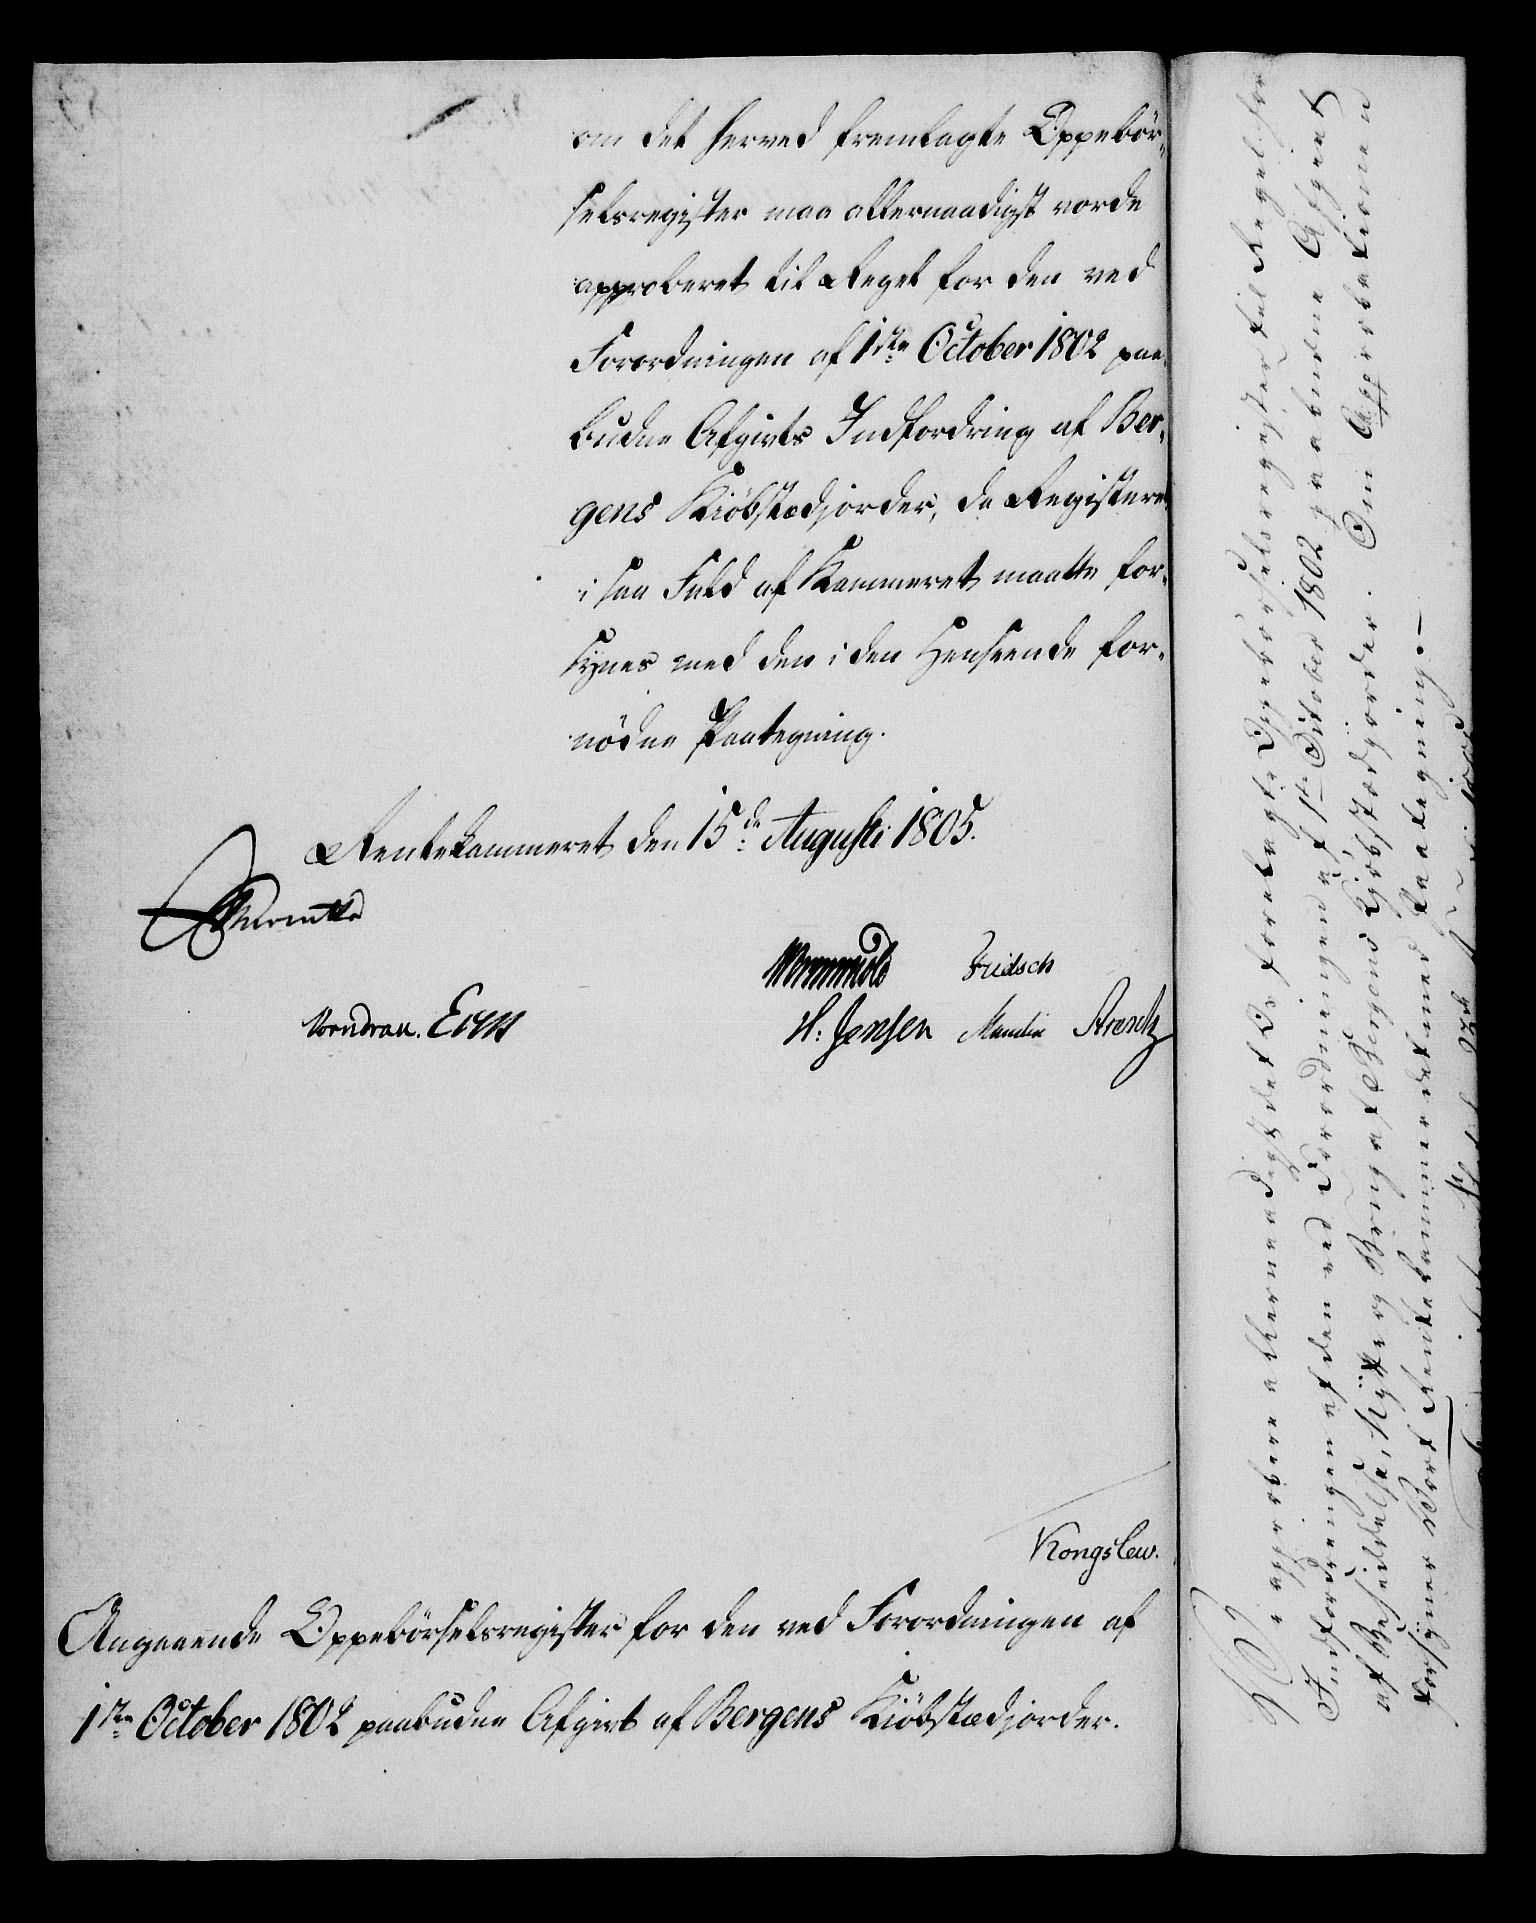 om det herved fremlagte Oppebör-
selsregister maa allernaadigst vorde
approberet til Regel for den ved
Forordningen af 1ste October 1802 paa-
budne Afgivts Indfordring af Ber-
gens Kiöbstædjorder, da Registeret
i saa Fald af Kammeret maatte for-
synes med den i den Henseende for-
nödne Paategning.
Rentekammeret den 15de Augusti 1805.
Wormskiold Fridsch
Vorndran.
H: Jensen Arentz
Kongslew.
Angaaende Oppebörselsregister for den ved Forordningen af
1ste October 1802 paabudne Afgivt af Bergens Kiöbstædjorder.
Vi approbere allernaadigst det Os forelagte Oppebörselsregister til Regel for
Indfordringen af den ved Forordningen af 1ste October 1802 paabudne Afgivt
af Besiddelse, Nÿtte og Brug af Bergens Kjöbstædjorder. Om Approbationen
forsÿner Vort Rentekammer det med Paategning.—